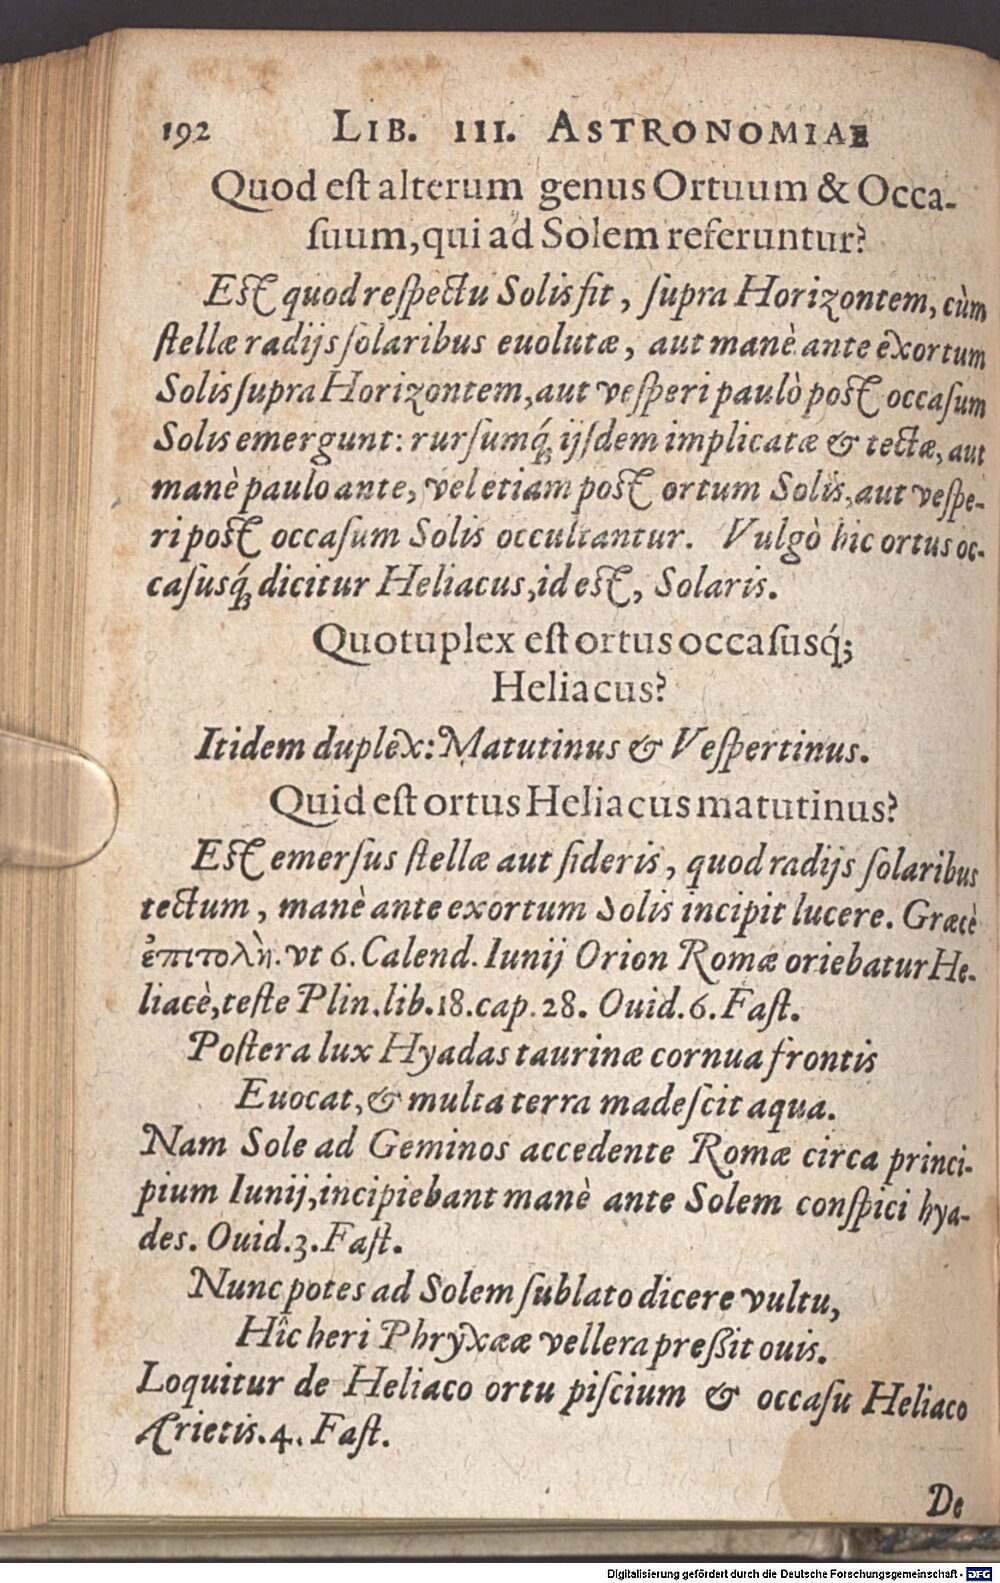 192 LIB. III. ASTRONOMIAE
Quod eſt alterum genus Ortuum & Occa-
ſuum, qui ad Solem referuntur?
Est quod reſpectu Solis fit, ſupra Horizontem, cùm
ſtellæ radijs ſolaribus euolutæ, aut manè ante exortum
Solis ſupra Horizontem, aut veſperi paulò post occaſum
Solis emergunt: rurſumq́; ijſdem implicatæ & tectæ, aut
manè paulo ante, vel etiam post ortum Solis, aut veſpe-
ri post occaſum Solis occultantur. Vulgò hic ortus oc-
caſusq́; dicitur Heliacus, id est, Solaris.
Quotuplex eſt ortus occaſusq́;
Heliacus?
Itidem duplex: Matutinus & Veſpertinus.
Quid eſt ortus Heliacus matutinus?
Est emerſus ſtellæ aut ſideris, quod radijs ſolaribus
tectum, manè ante exortum Solis incipit lucere. Græcè
ἐπιτολὴ. vt 6. Calend. Iunij Orion Romæ oriebatur He-
liacè, teſte Plin. lib. 18. cap. 28. Ouid. 6. Faſt.
Poſtera lux Hyadas taurinæ cornua frontis
Euocat, & multa terra madeſcit aqua.
Nam Sole ad Geminos accedente Romæ circa princi-
pium Iunij, incipiebant manè ante Solem conſpici hya-
des. Ouid. 3. Faſt.
Nunc potes ad Solem ſublato dicere vultu,
Hîc heri Phryxææ vellera preßit ouis.
Loquitur de Heliaco ortu piſcium & occaſu Heliaco
Arietis. 4. Faſt.
De
Digitalisierung gefördert durch die Deutsche Forschungsgemeinschaft - DFG